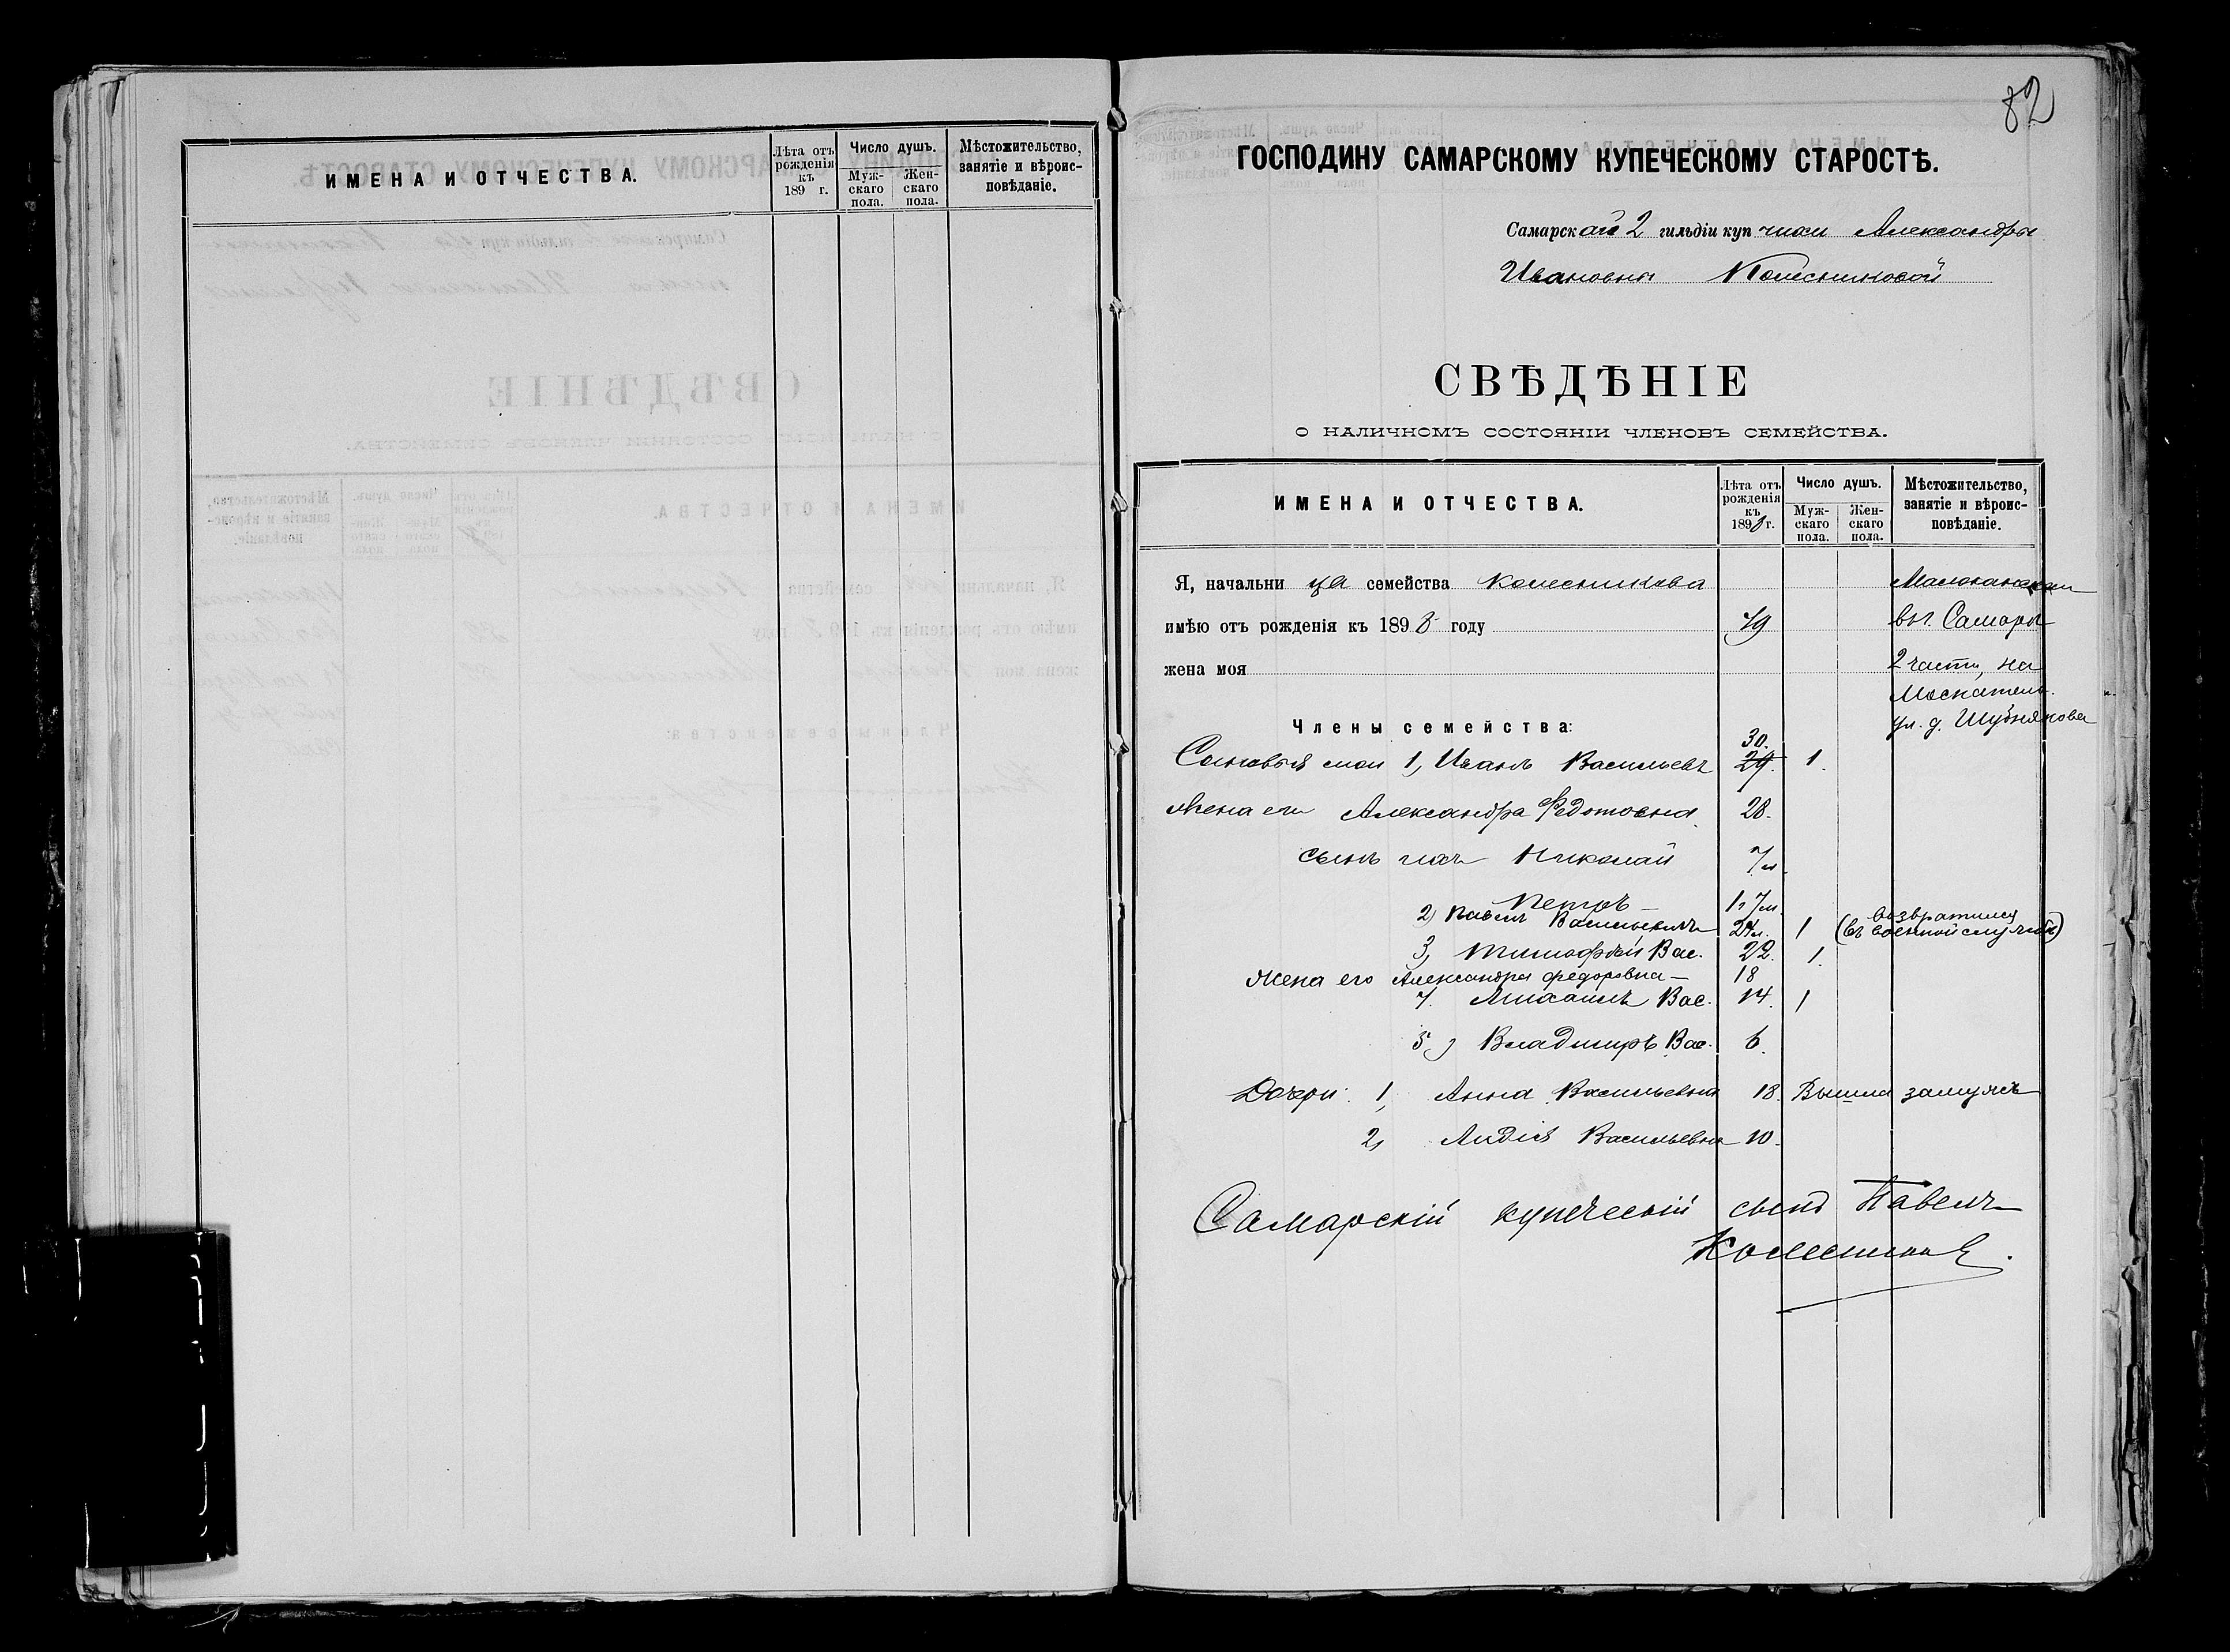 ИМЕНА И ОТЧЕСТВА.
Лѣта отъ рожденія къ 189 г.
Число душъ.
Мужскаго пола.
Женскаго пола.
Мѣстожительство, занятіе и вѣроисповѣданіе.
82
ГОСПОДИНУ САМАРСКОМУ КУПЕЧЕСКОМУ СТАРОСТѢ.
Самарской 2 гильдіи купчихи Александры
Ивановны Колесниковой
СВѢДѢНІЕ
О НАЛИЧНОМЪ СОСТОЯНІИ ЧЛЕНОВЪ СЕМЕЙСТВА.
ИМЕНА И ОТЧЕСТВА.
Лѣта отъ рожденія къ 1898 г.
Число душъ.
Мужскаго пола.
Женскаго пола.
Мѣстожительство, занятіе и вѣроисповѣданіе.
Я, начальница семейства Колесникова
имѣю отъ рожденія къ 1898 году 49
жена моя
в г. Самары
2 части, на
Москатель.
ул. д.
Члены семейства:
30.
Сыновья мои 1, Иванъ Васильевъ 29. 1.
Жена его Александра Федотовна 28.
сынъ ихъ Николай 7 л.
Петръ
2) Павелъ Васильевичъ 24 л. 1 (возвратился въ военной службѣ)
3, Тимофѣй Вас. 22. 1.
Жена его Александра Федоровна — 18
Михаилъ Вас. 14. 1
5, Владимиръ Вас. 6.
Дочери: 1, Анна Васильевна 18. Вышла замужъ
2, Лидія Васильевна 10.
Самарскій купеческій сынъ Павелъ
Колесников.